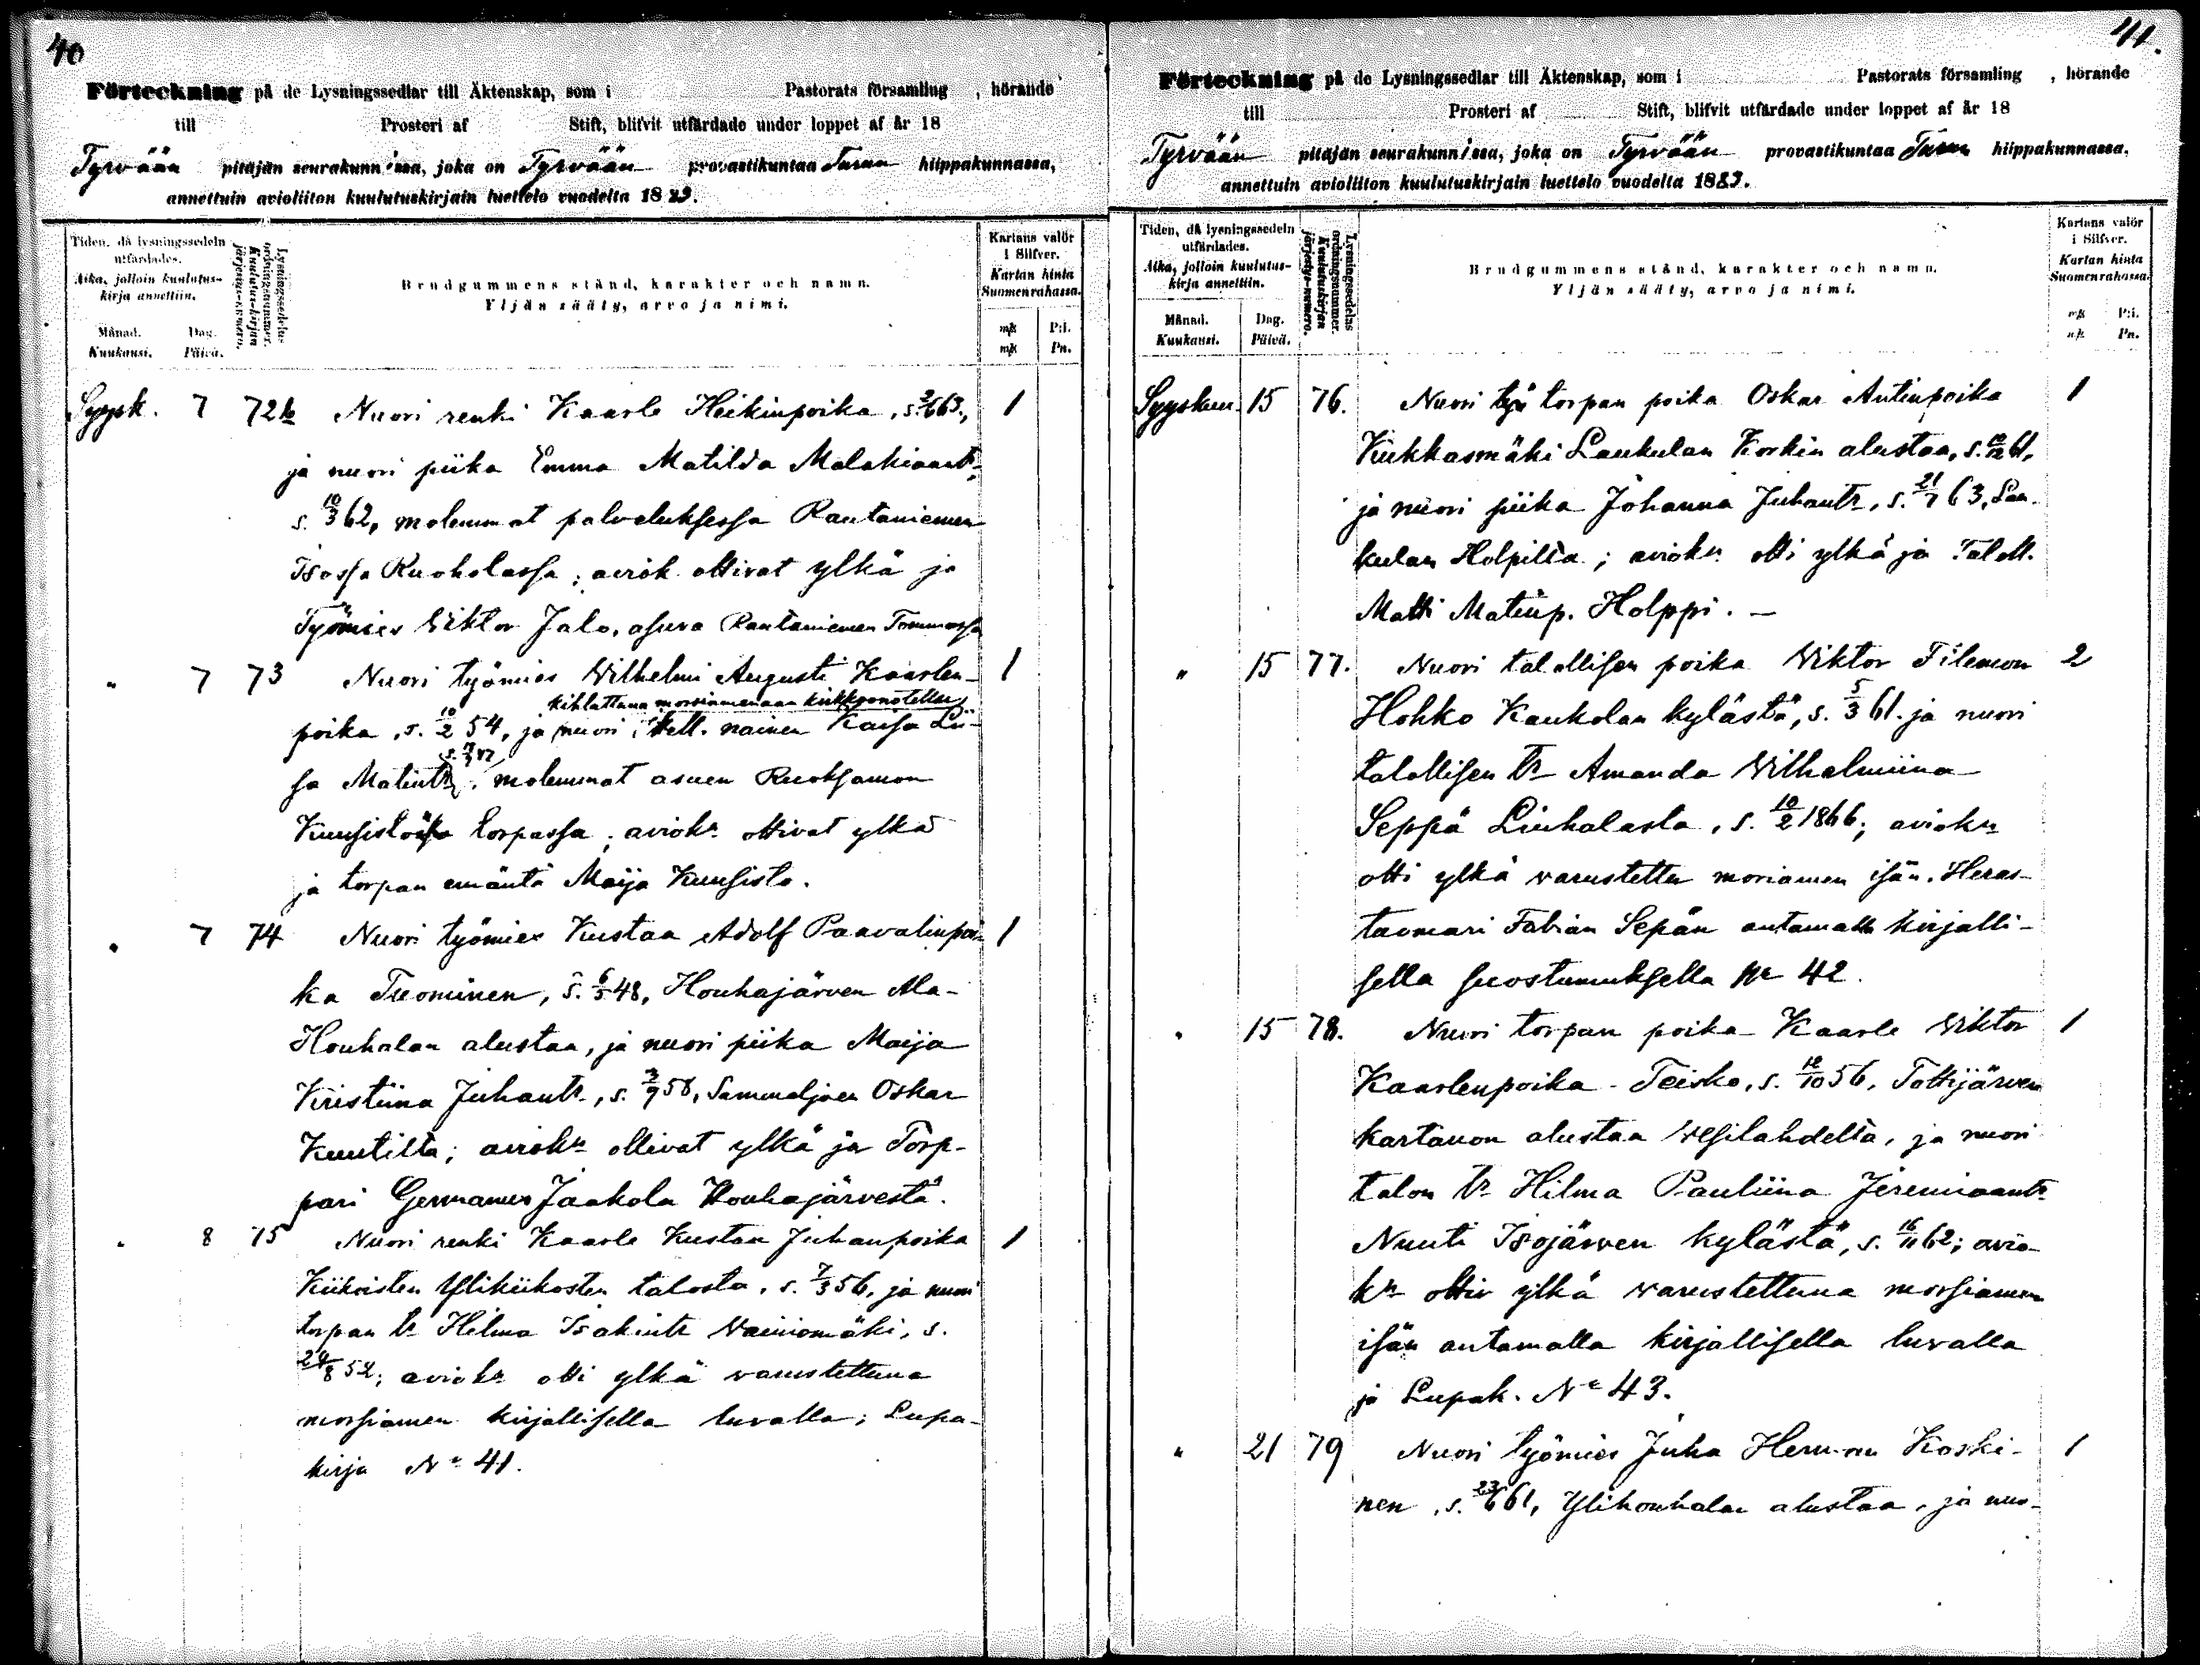 40
Förteckning på de Lysningssedlar till Äktenskap, som i Pastorats församling , hörande
till Prosteri af Stift, blifvit utfärdade under loppet af år 18
Tyrvään pitäjän seurakunnissa, joka on Tyrvään provastikuntaa Turun hiippakunnassa,
annettuin avioliiton kuulutuskirjain luettelo vuodelta 1883.
Tiden, då lysningssedeln utfärdades.
Aika, jolloin kuulutus-kirja annettiin.
Månad. Dag.
Kuukausi. Päivä.
Lysningssedelns ordningsnummer.
Kuulutus-kirjan järjestys-numero.
Brudgummens stånd, karakter och namn.
Yljän sääty, arvo ja nimi.
Kartans valör i Silfver.
Kartan hinta Suomenrahassa.
mk P:i.
mk Pn.
Syysk. 7 72 Nuori renki Kaarle Heikinpoika, s. 63, 1
ja nuori piika Emma Matilda Malakiaantr,
s. 10/3 62, molemmat palveluksessa Rautaniemen
Isossa Ruoholassa; aviok. ottivat ylkä ja
Työmies Viktor Jalo, asuva Rautaniemen Tommossa
" 7 73 Nuori työmies Wilhelmi Augusti Kaarlen- 1
kihlattuna morsiamenaan
poika, s. 10/2 54, ja nuori itsell. nainen Kaisa Lii-
sa Matintr, molemmat asuen Ruoksamon
Kuusistossa torpassa; aviokr ottivat ylkä
ja torpan emäntä Maija Kuusisto.
" 7 74 Nuori työmies Kustaa Adolf Paavalinpoi- 1
ka Tuominen, s. 6/5 48, Houhajärven Ala-
Houhalan alustaa, ja nuori piika Maija
Kristiina Juhantr, s. 3/9 58, Sammaljoen Oskar
Kuutilta; aviokr ottivat ylkä ja Torp-
pari Germanus Jaakola Houhajärvestä.
" 8 75 Nuori renki Kaarle Kustaa Juhanpoika 1
Kiikoisten Ylikiikosten talosta, s. 7/3 56, ja nuori
torpan tr Hilma Isakintr Vainiomäki, s.
24/8 52; aviokr otti ylkä varustettuna
morsiamen kirjallisella luvalla; Lupa-
kirja No 41.
41.
Förteckning på de Lysningssedlar till Äktenskap, som i Pastorats församling , hörande
till Prosteri af Stift, blifvit utfärdade under loppet af år 18
Tyrvään pitäjän seurakunnissa, joka on Tyrvään provastikuntaa Turun hiippakunnassa,
annettuin avioliiton kuulutuskirjain luettelo vuodelta 1883.
Tiden, då lysningssedeln utfärdades.
Aika, jolloin kuulutus-kirja annettiin.
Månad. Dag.
Kuukausi. Päivä.
Lysningssedelns ordningsnummer.
Kuulutuskirjan järjestys-numero.
Brudgummens stånd, karakter och namn.
Yljän sääty, arvo ja nimi.
Kartans valör i Silfver.
Kartan hinta Suomenrahassa.
mk P:i.
mk Pn.
Syyskuu 15 76. Nuori torpan poika Oskar Antinpoika 1
Kukkasmäki Laukulan Korkin alustaa, s. 61,
ja nuori piika Johanna Juhantr, s. 21/7 63, Lau-
kulan Holpilta; aviokr otti ylkä ja Taloll.
Matti Matinp. Holppi. —
" 15 77. Nuori talollisen poika Viktor Filemon 2
Hohko Kaukolan kylästä, s. 5/3 61. ja nuori
talollisen tr Amanda Wilhelmiina
Seppä Liuhalasta, s. 10/2 1866; aviokr
otti ylkä varustettu moriamen isän, Heras-
tuomari Fabian Sepän antamalla kirjalli-
sella suostumuksella No 42.
" 15 78. Nuori torpan poika Kaarle Viktor 1
Kaarlenpoika Teisko, s. 12/10 56, Tottijärven
kartanon alustaa Vesilahdelta, ja nuori
talon tr Hilma Pauliina Jeremiaantr
Nuuti Isojärven kylästä, s. 16/11 62; avio-
kr ottiv ylkä varustettuna morsiamen
isän antamalla kirjallisella luvalla
ja Lupak. No 43.
" 21 79 Nuori työmies Juha Herman Koski- 1
nen, s. 23/6 61, Ylihouhalan alustaa, ja nuo-